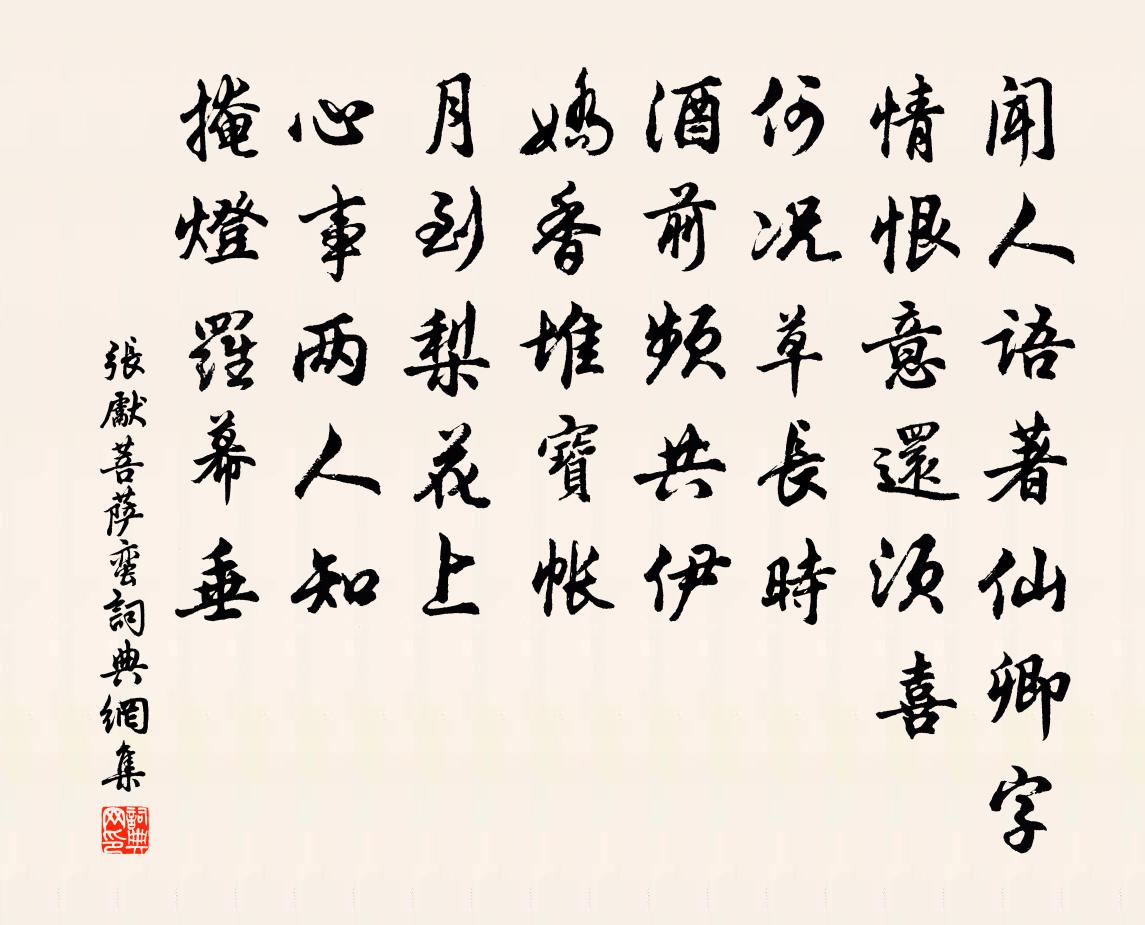 闻人语著仙卿字
情恨意還须喜
何况草長時
酒前频共伊
嬌香堆寶帳
月到梨花上
心事两人知
掩燈羅幕垂
張獻菩萨蛮詞典網集
詞典網印